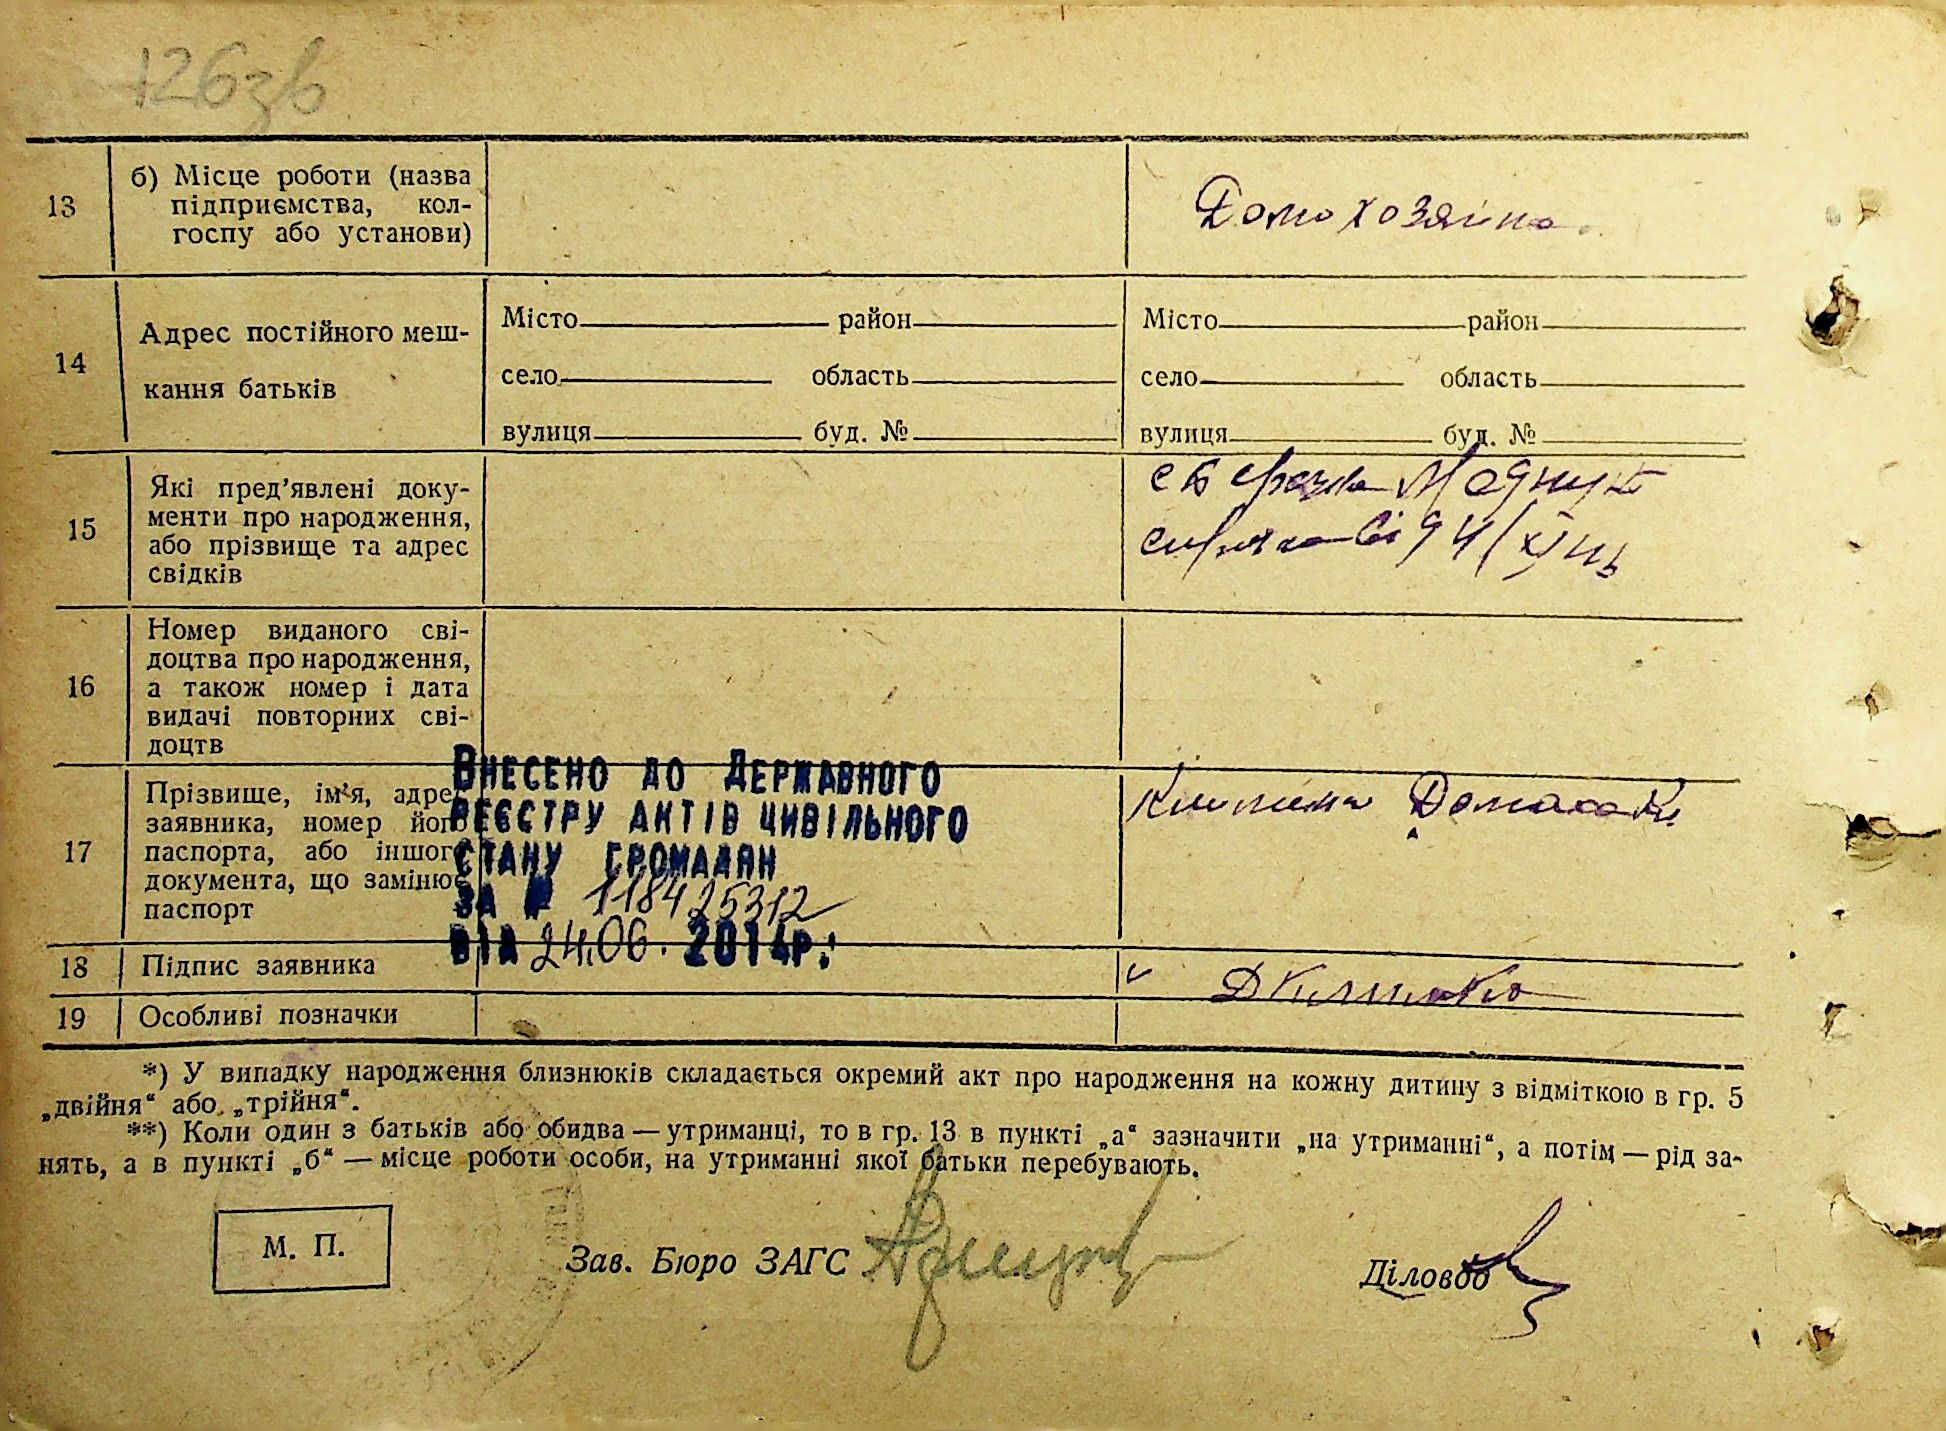 126зв
13
б) Місце роботи (назва
підприємства, кол-
госпу або установи)
Домохозяйка.
14
Адрес постійного меш-
кання батьків
Місто район
село область
вулиця буд. №
Місто район
село область
вулиця буд. №
15
Які пред'явлені доку-
менти про народження,
або прізвище та адрес
свідків
16
Номер виданого сві-
доцтва про народження,
а також номер і дата
видачі повторних сві-
доцтв
17
Прізвище, ім'я, адрес
заявника, номер його
паспорта, або іншого
документа, що замінює
паспорт
ВНЕСЕНО ДО ДЕРЖАВНОГО
РЕЄСТРУ АКТІВ ЦИВІЛЬНОГО
СТАНУ ГРОМАДЯН
ЗА № 118425312
ВІД 24.06. 2014р.
18
Підпис заявника
19
Особливі позначки
*) У випадку народження близнюків складається окремий акт про народження на кожну дитину з відміткою в гр. 5
„двійня“ або „трійня“.
**) Коли один з батьків або обидва — утриманці, то в гр. 13 в пункті „а“ зазначити „на утриманні“, а потім — рід за-
нять, а в пункті „б“ — місце роботи особи, на утриманні якої батьки перебувають.
М. П.
Зав. Бюро ЗАГС
Діловод